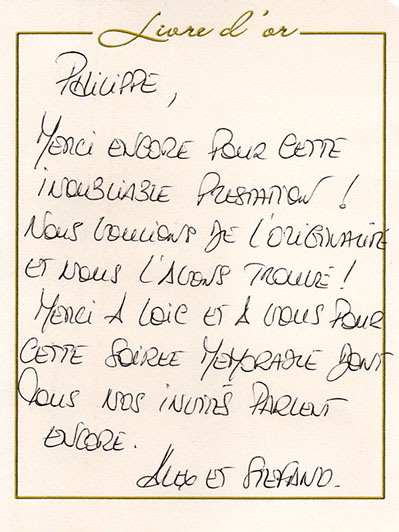 Livre d'or
PHILIPPE,
MERCI ENCORE POUR CETTE
INOUBLIABLE PRESTATION !
NOUS VOULIONS DE L'ORIGINALITE
ET NOUS L'AVONS TROUVÉ !
MERCI A LOIC ET A VOUS POUR
CETTE SOIREE MEMORABLE DONT
TOUS NOS INVITÉS PARLENT
ENCORE.
ALEX ET STEFANO.